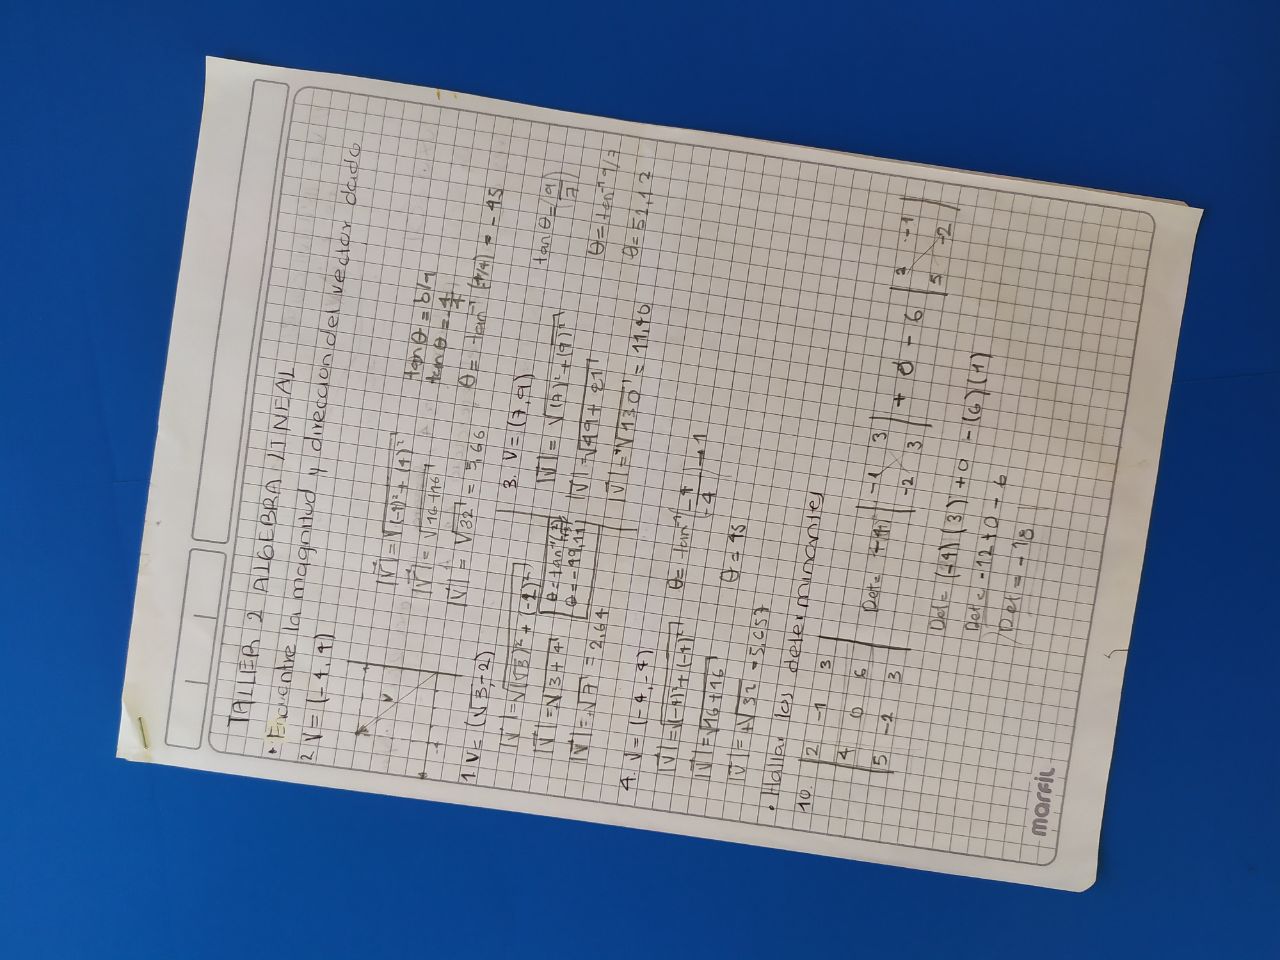 TALLER 2 ALGEBRA LINEAL
• Encuentre la magnitud y direccion del vector dado
2 V = (-4,4)
V
|V| = √(-4)² + (4)²
|V| = √16+16
|V| = √32 = 5,66
tan θ = b/a
tan θ = 4/4
θ = tan⁻¹ (4/4) = -45
1. V = (√3,-2)
|V| = √(√3)² + (-2)²
|V| = √3+4
|V| = √7 = 2,64
θ = -49,11
3. V = (7,9)
|V| = √(7)²+(9)²
|V| = √49+81
|V| = √130 = 11,40
tan θ = (9/7)
θ = tan⁻¹ 9/7
θ = 52,12
4. V = (-4,-4)
|V| = √(-4)²+(-4)²
|V| = √16+16
|V| = √32 = 5,657
θ = tan⁻¹ -4/-4 = 1
θ = 45
• Hallar los determinantes
10.
2 -1 3
4 0 6
5 -2 3
Det = -4 | -1 3 | + 0 - 6 | 2 -1 |
-2 3 5 -2
Det = (-4)(3) + 0 - (6)(1)
Det = -12 + 0 - 6
Det = -18
marfil